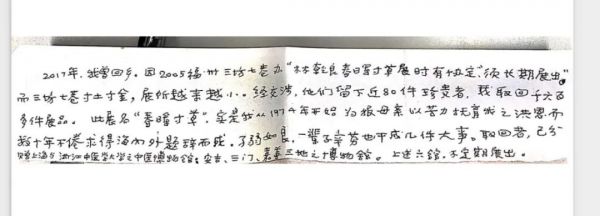 2017年,我曾回乡。因2005福州三坊七巷办“林乾良春晖寸草展时有协定“须长期展出”
而三坊七巷寸土寸金,展所越来越小。经交涉,他们留下近80件珍贵者,我取回千六百
多件展品。此展名“春晖寸草”,实是我从1974年开始为报母亲以苦力抚育成之洪恩而
数十年不倦求得海内外题辞而成。了弱如良,一辈子辛劳也干成几件大事。取回者,已分
赠上海与浙江中医药大学之中医博物馆;安吉、三门、嘉善三地之博物馆。上述六馆,不定期展出。